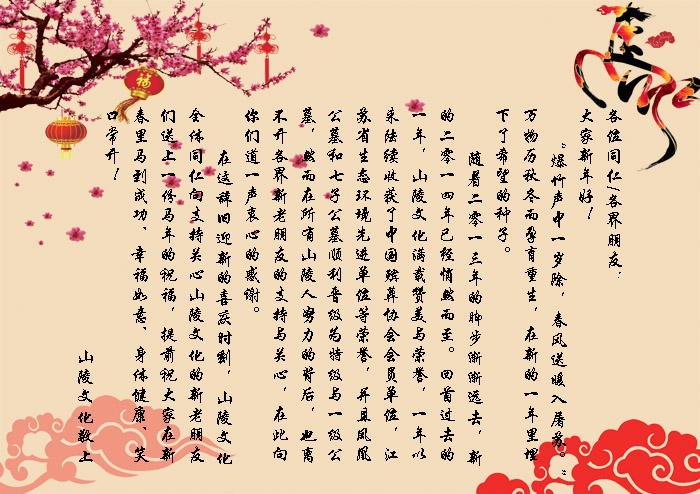 各位同仁/各界朋友:
大家新年好!
“爆竹声中一岁除,春风送暖入屠苏。”
万物历秋冬而孕育重生,在新的一年里埋
下了希望的种子。
随着二零一三年的脚步渐渐远去,新
的二零一四年已经悄然而至。回首过去的
一年,山陵文化满载赞美与荣誉,一年以
来陆续收获了中国殡葬协会会员单位,江
苏省生态环境先进单位等荣誉,并且凤凰
公墓和七子公墓顺利晋级为特级与一级公
墓,然而在所有山陵人努力的背后,也离
不开各界新老朋友的支持与关心,在此向
你们道一声衷心的感谢。
在这辞旧迎新的喜庆时刻,山陵文化
全体同仁向支持关心山陵文化的新老朋友
们送上一份马年的祝福,提前祝大家在新
春里马到成功、幸福如意、身体健康、笑
口常开!
山陵文化敬上
福